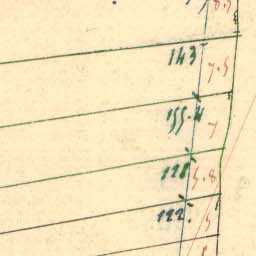 8.5
143
7.5
155.4
7
128
5.8
122.
5